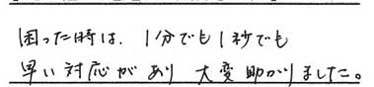 困った時は、1分でも1秒でも
早い対応があり 大変助かりました。